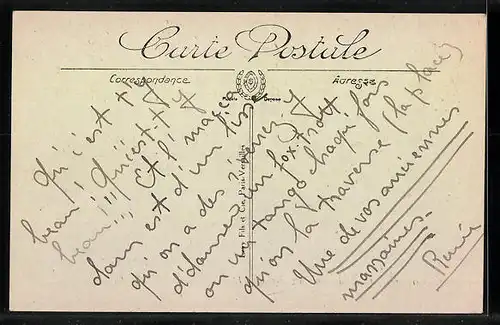 Carte Postale
Correspondance
Adresse
Lévy Fils et Cie, Paris-Versailles
Qu'il est
beau !!! Qu'il est
beau !!! Et l'
dans est d'un
qu'on a des envies
de danser un fox-trott
ou un tango chaque fois
qu'on la traverse (la place)
Une de vos anciennes
Renée